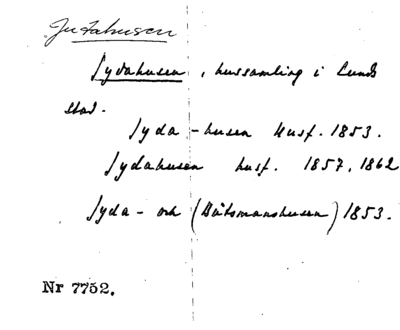 Jydahusen
Jydahusen, hussamling i Lunds
stad.
Jyda-husen Husf. 1853.
Jydahusen husf. 1857, 1862
Jyda- och (Båtsmanshusen) 1853.
Nr 7752.